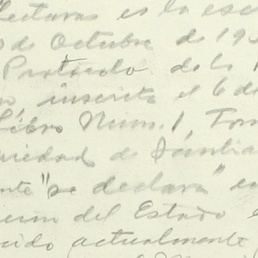 lecturas es la esc
de Octubre de 19
Protocolo de la
inscrita el 6 de
Libro Num. 1, Tom
piedad de Santia
nte "se declara" en
cion del Estado e
cido actualmente